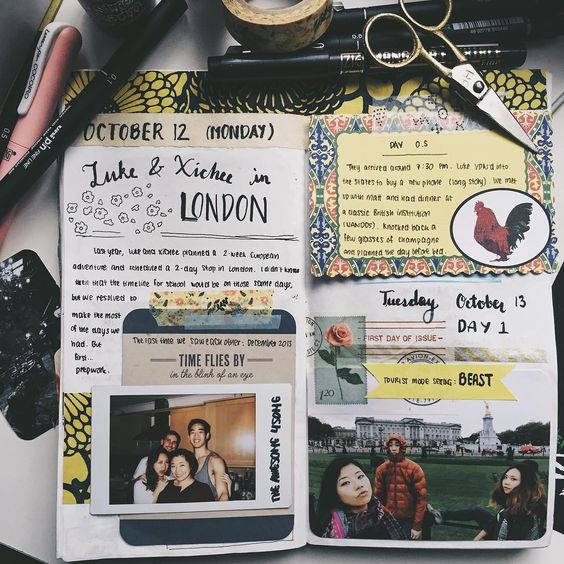 OCTOBER 12 (MONDAY)
Luke & Xichee in
LONDON
Last year, Luke and Xichee planned a 2-week European
adventure and scheduled a 2-day stop in London. I didn't know
until that the timeline for school would be on those same days,
but we resolved to
make the most
of the days we
had. But
first...
prepwork.
The last time we saw each other: December 2013
TIME FLIES BY
in the blink of an eye
THE AWESOME 4SOME
DAY 0.5
They arrived around 7:30 PM. Luke VPN'd into
the states to buy a new phone (long story). We met
up with Matt and had dinner at
a classic British institution
(NANDOS). Knocked back a
few glasses of champagne
and planned the day before bed.
Tuesday October 13
DAY 1
FIRST DAY OF ISSUE
PAR AVION
1.20
TOURIST MODE SETTING: BEAST